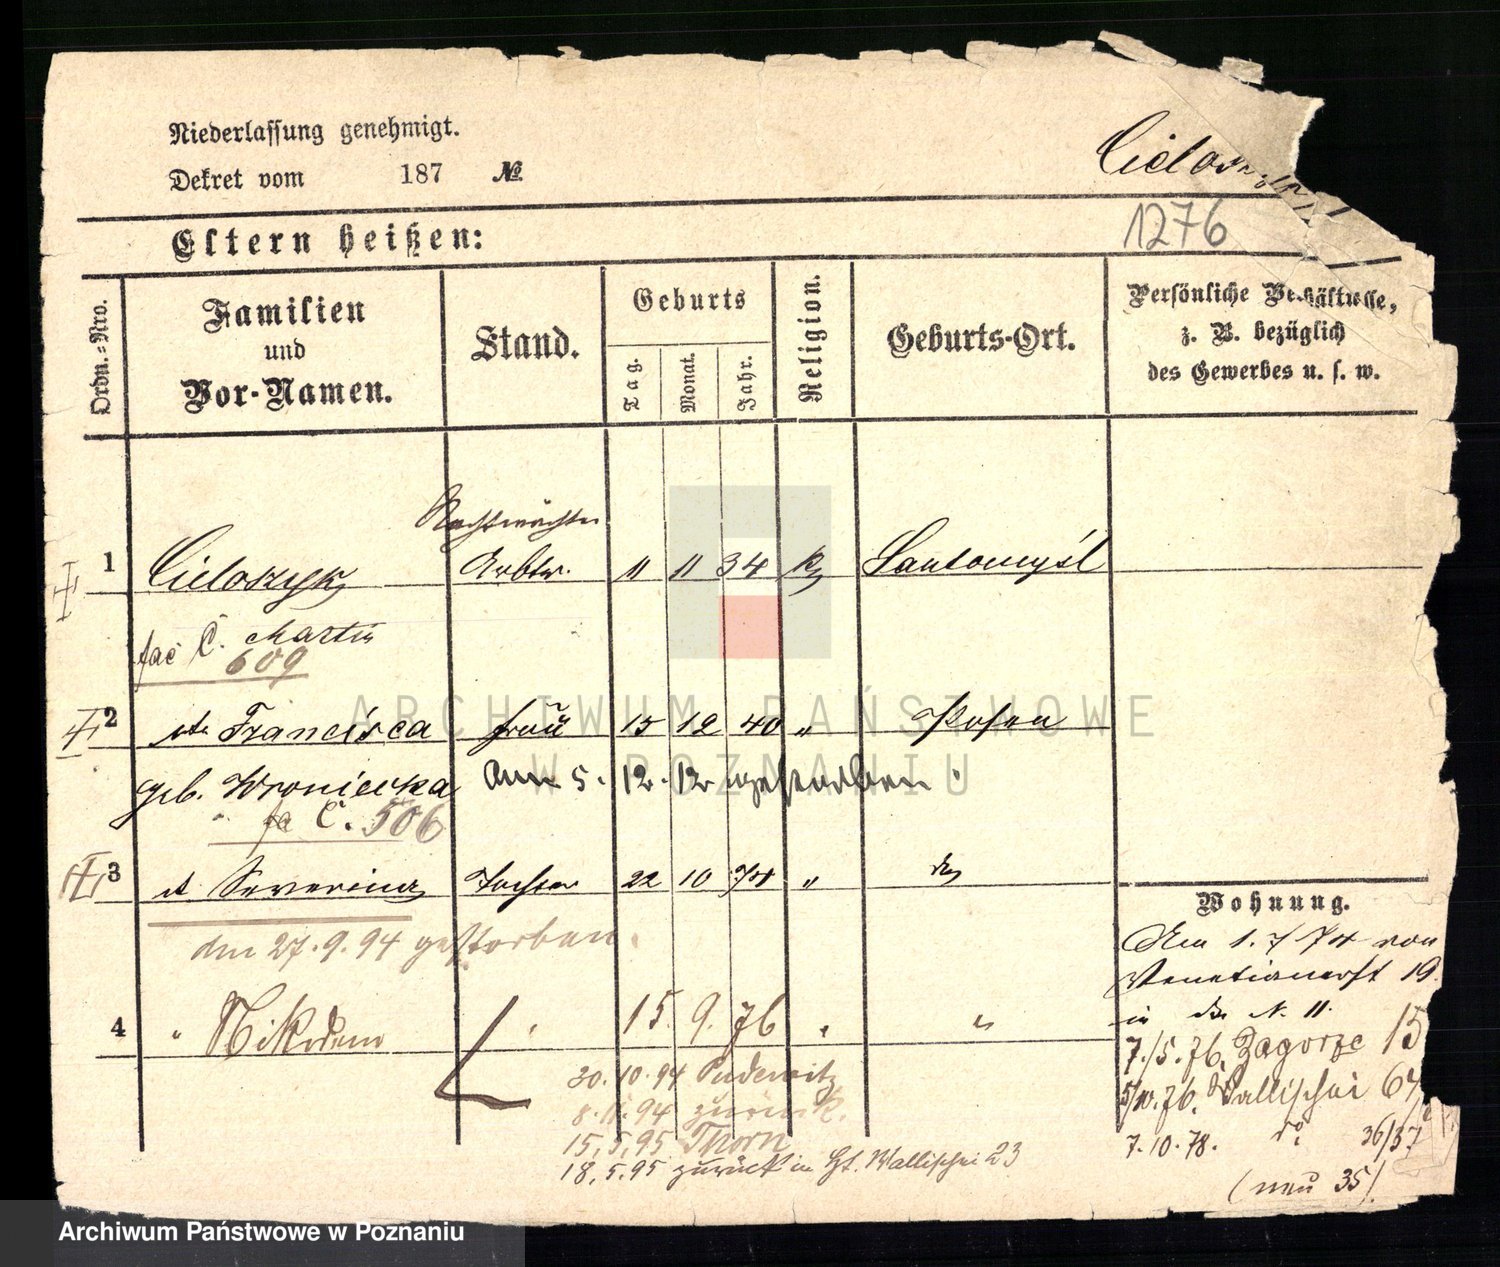 Niederlassung genehmigt.
Dekret vom 187 №
1276
Eltern heißen:
Ordn.-Nro.
Familien und Vor-Namen.
Stand.
Geburts
Tag.
Monat.
Jahr.
Religion.
Geburts-Ort.
Persönliche Verhältnisse,
z. B. bezüglich
des Gewerbes u. s. w.
Nachtwächter
1 Cieloszyk Arbtr. " " 34 k Santomyśl
C. Martin
609
2 Francisca Frau 15 12 40 " Posen
geb. Wroniecka am 5. 12. 12 gestorben.
C. 506
3 Severina Tochter 22 10 74 "
den 27. 9. 94 gestorben.
4 " Nikodem " 15. 9. 76 " "
30. 10. 94 Pudewitz
8. 11. 94 zurück.
15. 5. 95 Thorn
18. 5. 95 zurück in Wallischei 23
Wohnung.
1. 7 74 von
Venetianerst 19.
in N. 11.
7./5. 76. Zagorze 15
5/10. 76. Wallischei
7. 10. 78. do 36/37
(neu 35)
ARCHIWUM PAŃSTWOWE
W POZNANIU
Archiwum Państwowe w Poznaniu